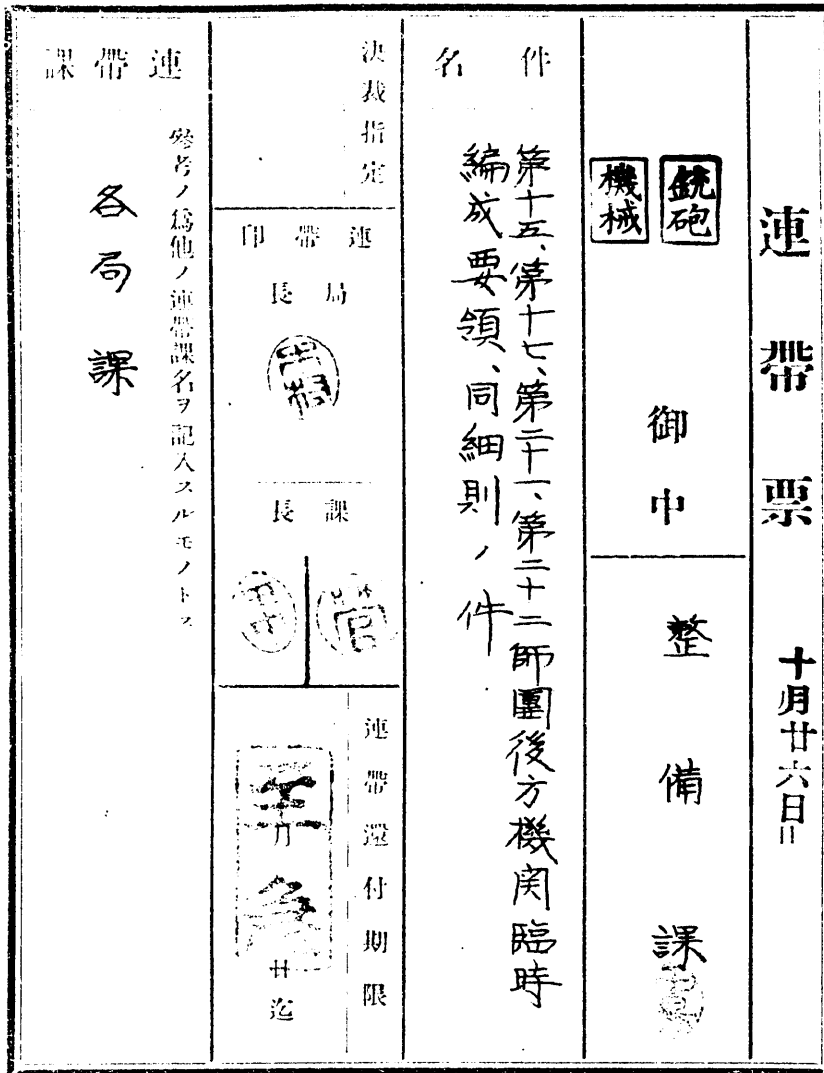 連帶票
十月廿六日
銃砲
機械
御中
整備課
件名
第十五、第十七、第二十一、第二十二師團後方機関臨時
編成要領、同細則ノ件
決裁指定
連帶印
局長
課長
連帶還付期限
月
迄
連帶課
參考ノ爲他ノ連帶課名ヲ記入スルモノトス
各局課